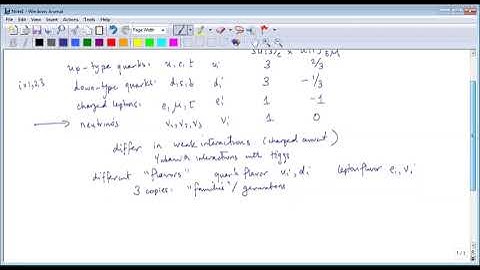 Note1 - Windows Journal
File Edit View Insert Actions Tools Help
Page Width
SU(3)c x U(1)EM
up-type quarks: u, c, t ui 3 2/3
i=1,2,3 down-type quarks: d, s, b di 3 -1/3
charged leptons: e, μ, τ ei 1 -1
→ neutrinos ν1, ν2, ν3 νi 1 0
differ in weak interactions (charged current)
Yukawa interactions with Higgs
different "flavors" quark flavor ui, di lepton flavor ei, νi
3 copies: "families"/generations
1 / 1